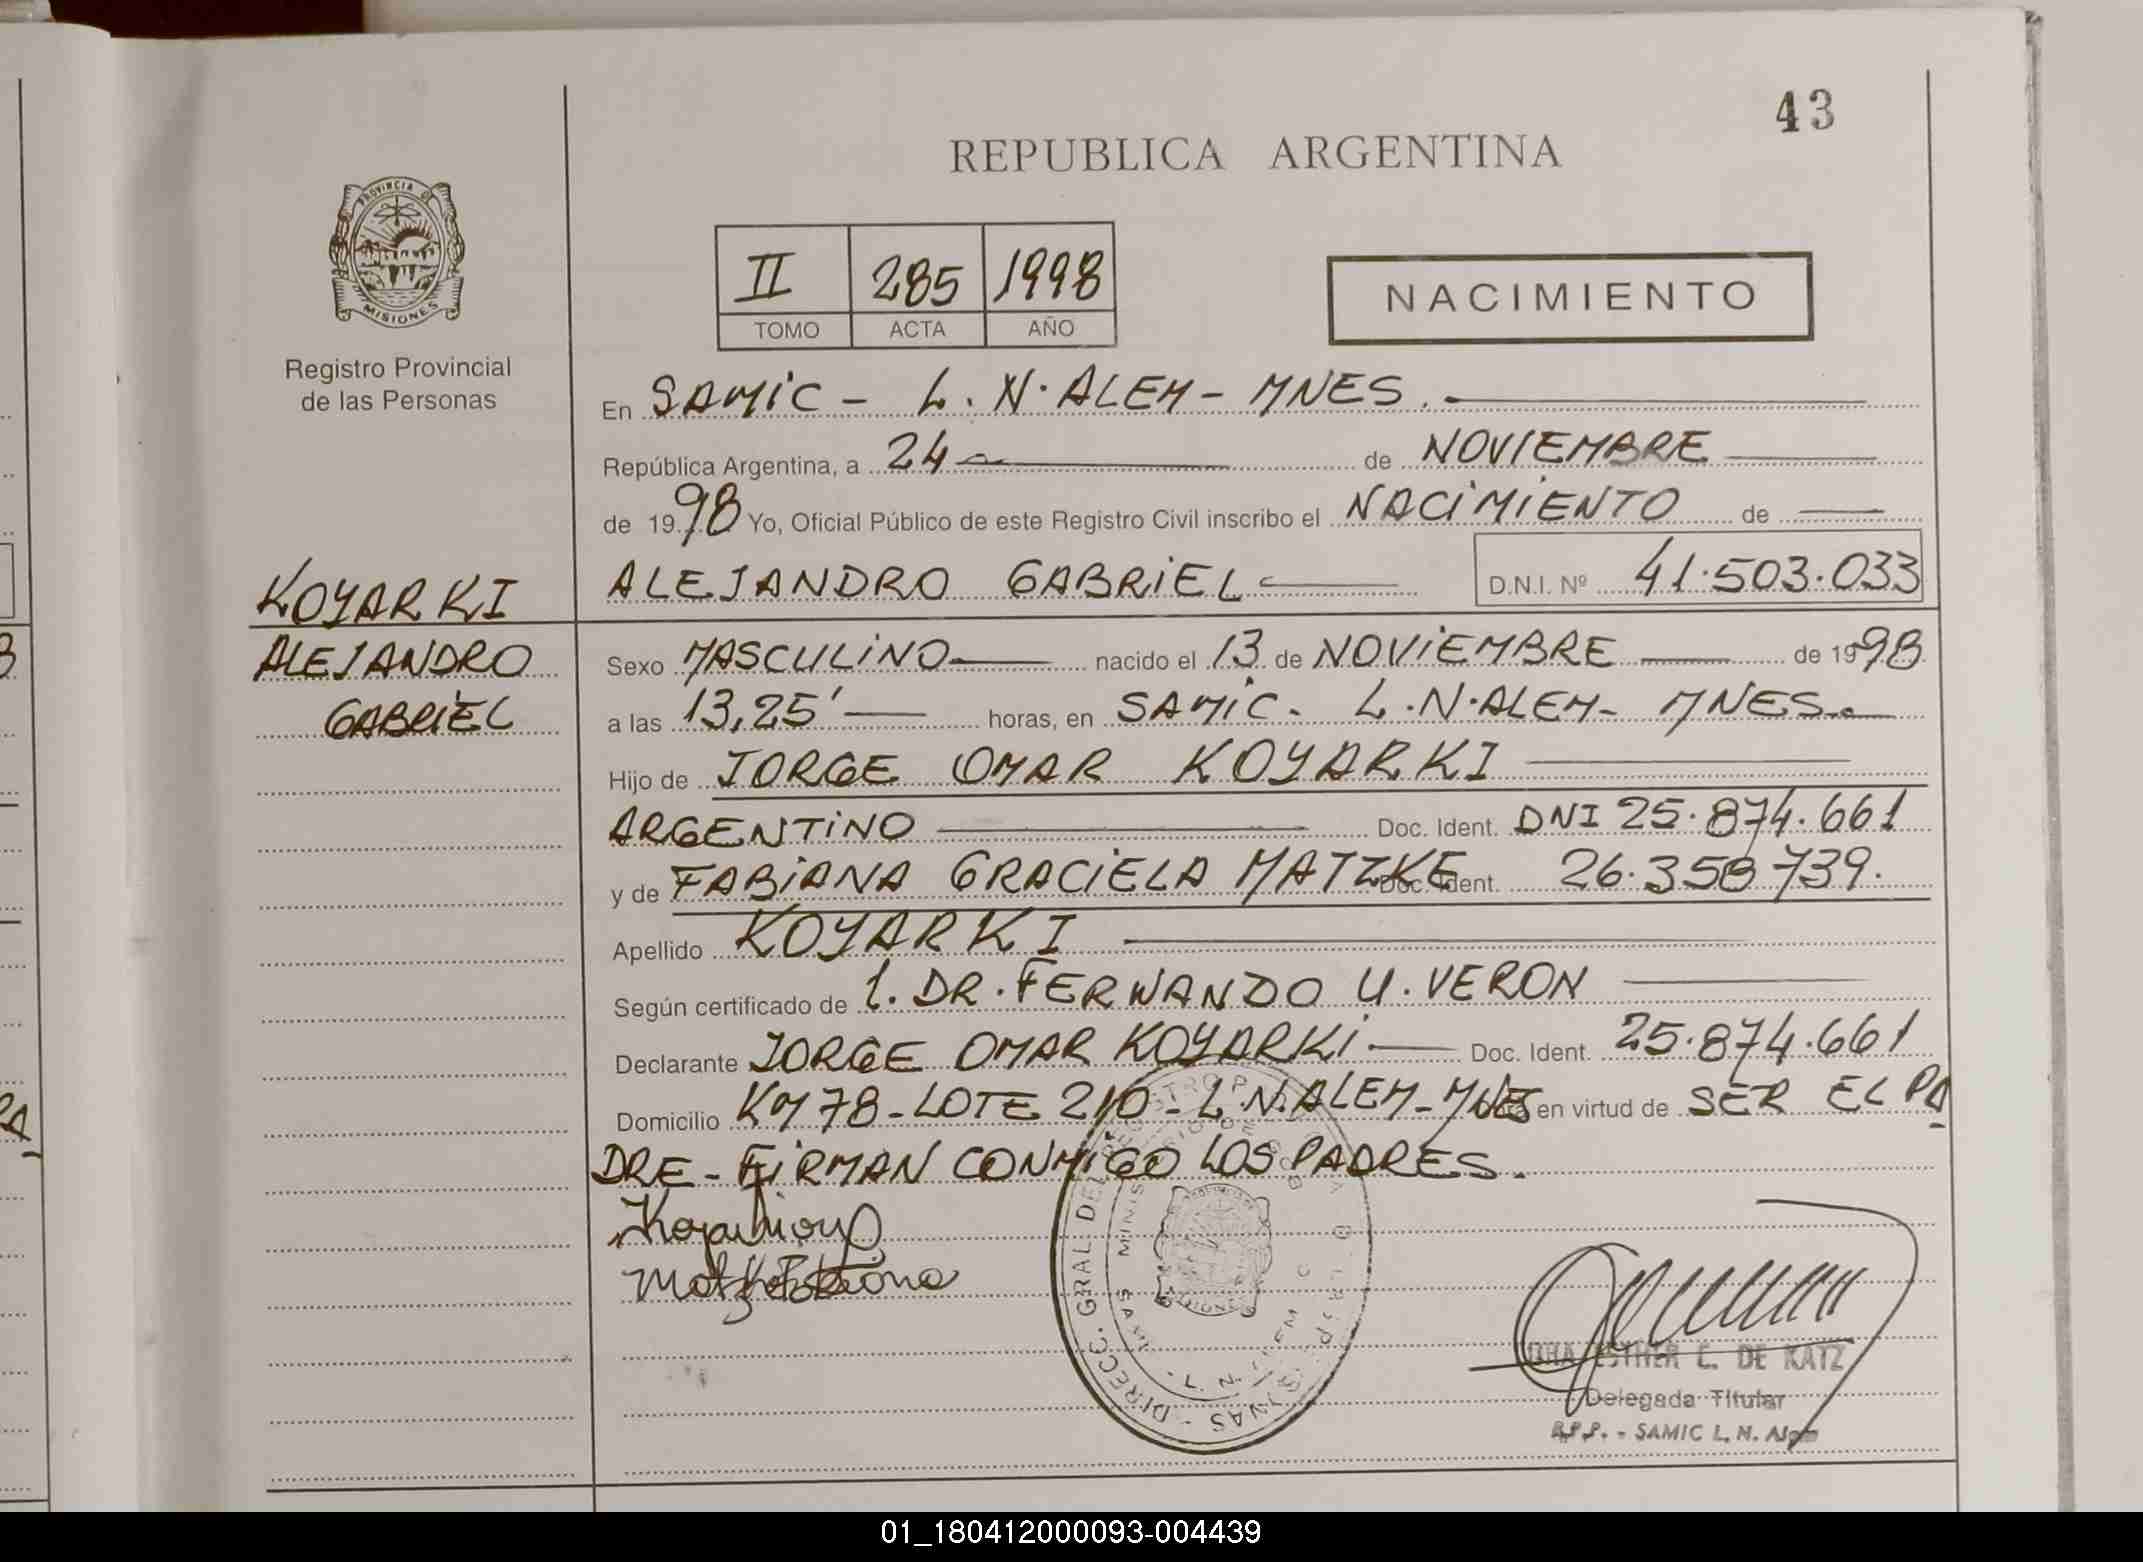 43
REPUBLICA ARGENTINA
PROVINCIA DE
MISIONES
Registro Provincial
de las Personas
II 285 1998
TOMO ACTA AÑO
NACIMIENTO
En SAMIC - L. N. ALEM - MNES.
República Argentina, a 24 de NOVIEMBRE
de 1998 Yo, Oficial Público de este Registro Civil inscribo el NACIMIENTO de
ALEJANDRO GABRIEL D.N.I. Nº 41.503.033
KOYARKI
ALEJANDRO
GABRIEL
Sexo MASCULINO nacido el 13 de NOVIEMBRE de 1998
a las 13,25' horas, en SAMIC. L.N.ALEM- MNES.
Hijo de JORGE OMAR KOYARKI
ARGENTINO Doc. Ident. DNI 25.874.661
y de FABIANA GRACIELA MATZKE Doc. Ident. 26.358739.
Apellido KOYARKI
Según certificado de 1. DR. FERNANDO U. VERON
Declarante JORGE OMAR KOYARKI Doc. Ident. 25.874.661
Domicilio KM 78 - LOTE 210 - L.N.ALEM - MNES en virtud de SER EL PA
DRE - FIRMAN CONMIGO LOS PADRES.
Matzke Fabiana
DIRECC. GRAL DEL
L. N.
DRA. ESTHER C. DE KATZ
Delegada Titular
R.P.P. - SAMIC L. N. Alem
01_180412000093-004439